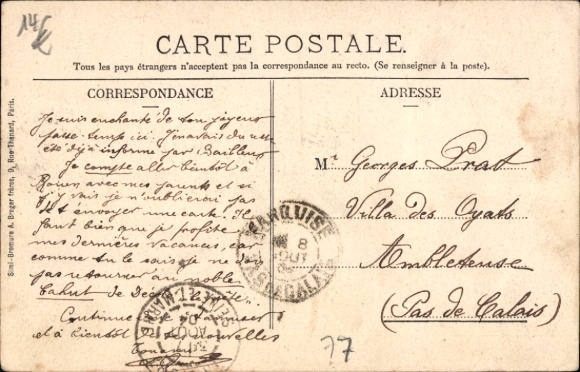 14
CARTE POSTALE.
Tous les pays étrangers n'acceptent pas la correspondance au recto. (Se renseigner à la poste).
CORRESPONDANCE
Je suis enchanté de ton joyeux
passe-temps ici. J'en avais du reste
été déjà informé par
Je compte aller bientôt à
Rouen avec mes parents et si
j'y vais je n'oublierai pas
de t'envoyer une carte. Il
faut bien que je profite de
mes dernières vacances, car
comme tu le sais je ne dois
pas retourner au noble
Cahut de
Continue à t'amuser
et à bientôt de tes nouvelles
Ton ami
ADRESSE
Mr Georges Prat
Villa des Oyats
Ambleteuse
(Pas de Calais)
MARQUISE
8
AOUT
PAS DE CALAIS
AOUT
04
77
Simi-Bromure A. Breger frères, 9, Rue Thénard, Paris.